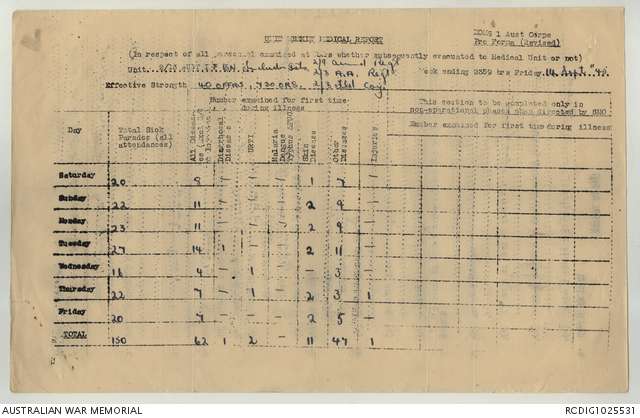 UNIT WEEKLY MEDICAL REPORT
DDMS 1 Aust Corps
Pro Forma (Revised)
(In respect of all personnel examined at RAPs whether subsequently evacuated to Medical Unit or not)
Unit 2/9 Armd Regt
2/3 A.A. Regt
Week ending 2359 hrs Friday 14 Sept '45
Effective Strength 40 OFFRS, 730 ORS. 2/3 Fld Coy
Number examined for first time during illness
This section to be completed only in non-operational phases when directed by
Number examined for first time during illness
Day
Total Sick Parades (all attendances)
Diarrhoeal Diseases
URTI
Malaria Dengue
Skin Diseases
Other Diseases
Injuries
Saturday 20 8 - - - 1 7 -
Sunday 22 11 - - - 2 9 -
Monday 23 11 - - - 2 9 -
Tuesday 27 14 1 - - 2 11 -
Wednesday 16 4 - 1 - - 3 -
Thursday 22 7 - 1 - 2 3 1
Friday 20 7 - - - 2 5 -
TOTAL 150 62 1 2 - 11 47 1
AUSTRALIAN WAR MEMORIAL
RCDIG1025531